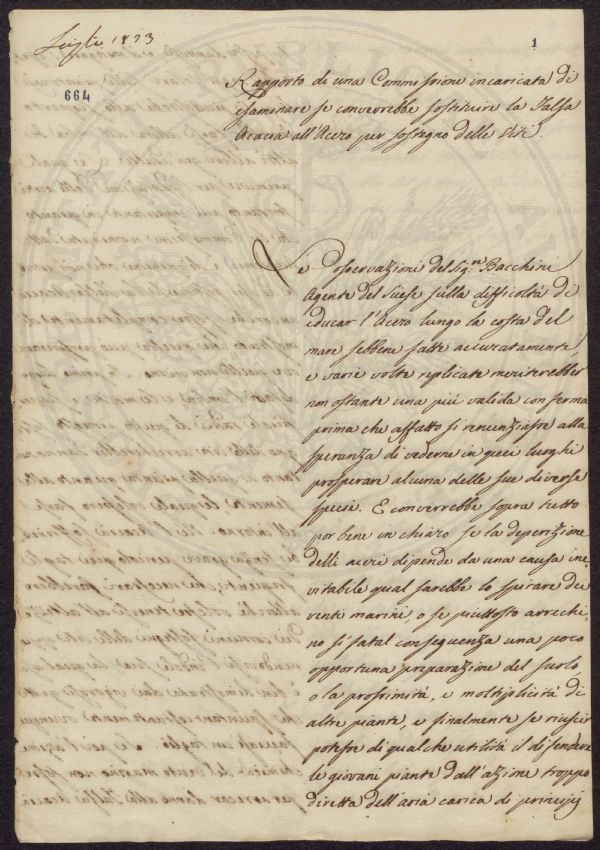 Luglio 1823
1
664
Rapporto di una Commissione incaricata di
esaminare se converrebbe sostituire la Falsa
Acacia all'Acero per sostegno delle Viti.
Le Osservazioni del Sig.re Bacchini
Agente del Suese sulla difficoltà di
educar l'Acero lungo la costa del
mare sebbene fatte accuratamente,
e varie volte replicate meriterebber
non ostante una più valida conferma
prima che affatto si renunziasse alla
speranza di vederne in quei luoghi
prosperare alcuna delle sue diverse
specie. E converrebbe sopra tutto
por bene in chiaro se la deperizione
delli aceri dipende da una causa ine
vitabile qual sarebbe lo spirare dei
venti marini, o se piuttosto arrechi
no sì fatal conseguenza una poco
opportuna preparazione del suolo
o la prossimità, e moltiplicità di
altre piante, e finalmente se riuscir
potesse di qualche utilità il difendere
le giovani piante dall'azione troppo
diretta dell'aria carica di principj